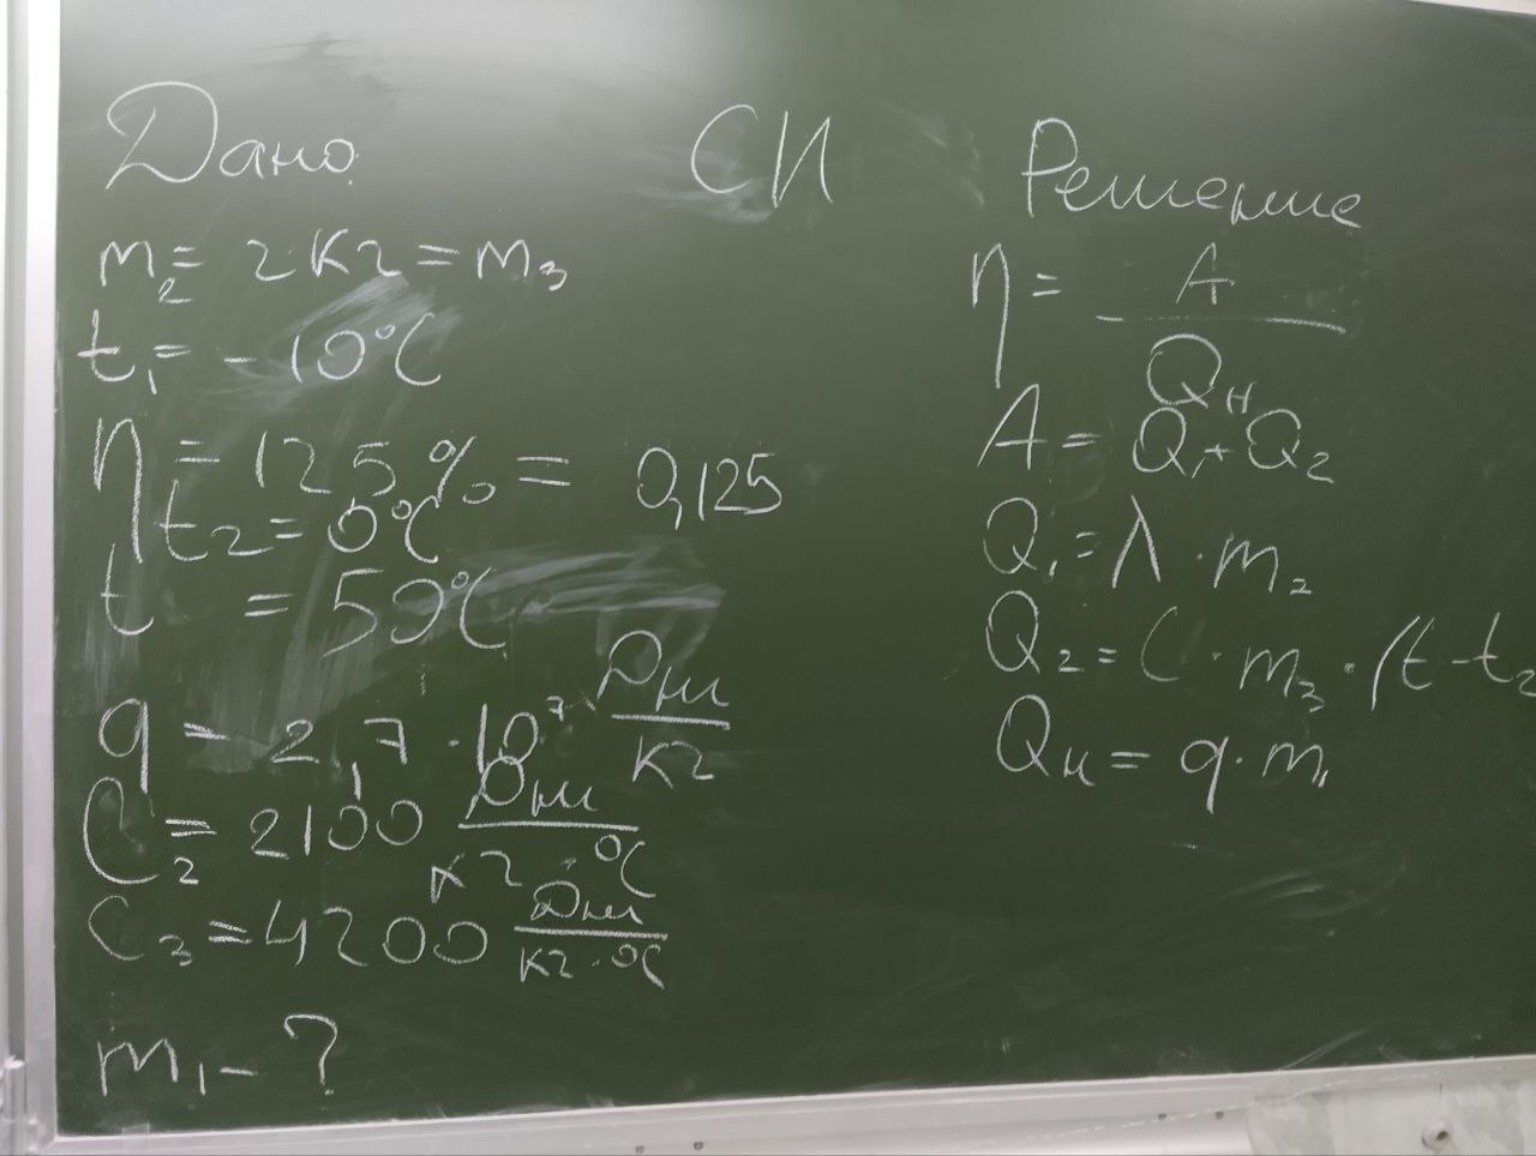 Дано СИ Решение
m₂ = 2 кг = m₃
t₁ = -10°C
η = 125% = 0,125
t₂ = 0°C
t = 50°C
q = 2,7 · 10⁷ Дж/кг
C₂ = 2100 Дж/кг · °C
C₃ = 4200 Дж/кг · °C
m₁ - ?
η = A/Qн
A = Q₁ + Q₂
Q₁ = λ · m₂
Q₂ = C · m₃ · (t - t₂
Qн = q · m₁